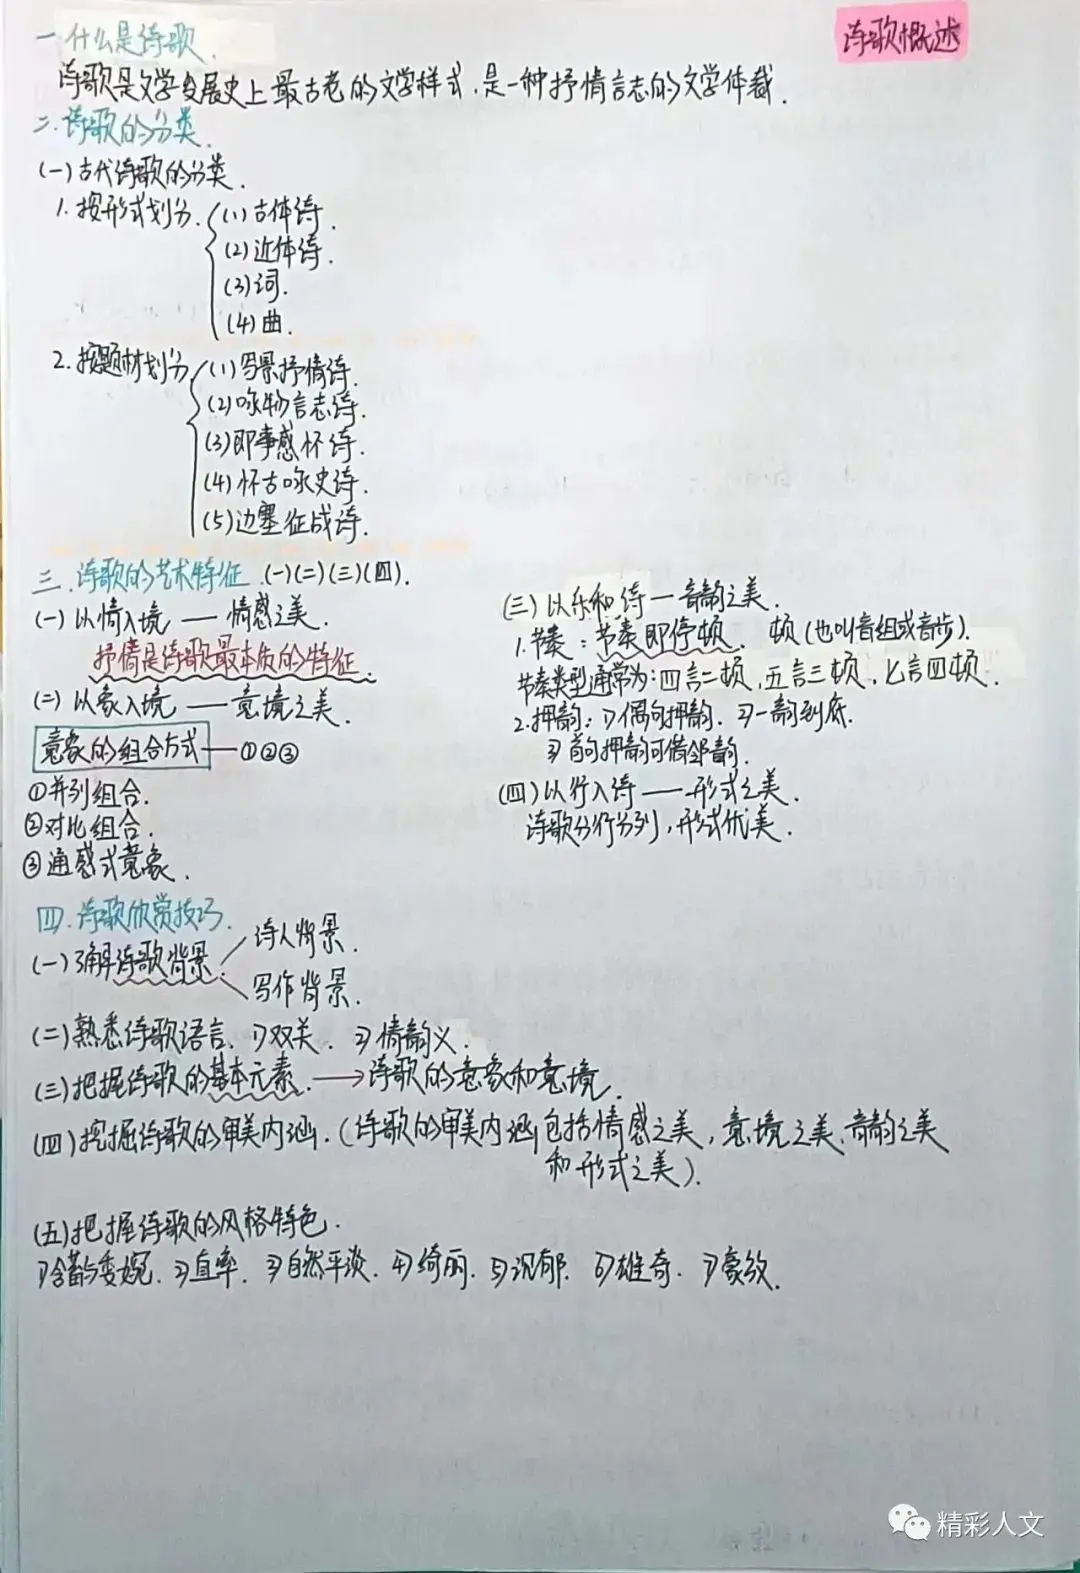 诗歌概述
一.什么是诗歌.
诗歌是文学发展史上最古老的文学样式.是一种抒情言志的文学体裁.
二.诗歌的分类.
(一)古代诗歌的分类.
1.按形式划分.
(1)古体诗.
(2)近体诗.
(3)词.
(4)曲.
2.按题材划分
(1)写景抒情诗.
(2)咏物言志诗.
(3)即事感怀诗.
(4)怀古咏史诗.
(5)边塞征战诗.
三.诗歌的艺术特征.(一)(二)(三)(四).
(一)以情入境——情感之美.
抒情是诗歌最本质的特征.
(二)以象入境——意境之美.
意象的组合方式——①②③
①并列组合.
②对比组合.
③通感式意象.
(三)以乐和诗—音韵之美.
1.节奏:节奏即停顿. 顿(也叫音组或音步).
节奏类型通常为:四言二顿,五言三顿,七言四顿.
2.押韵:1)偶句押韵. 2)一韵到底.
3)首句押韵可借邻韵.
(四)以行入诗——形式之美.
诗歌分行分列,形式优美.
四.诗歌欣赏技巧.
(一)了解诗歌背景.
诗人背景.
写作背景.
(二)熟悉诗歌语言. 1)双关. 2)情韵义.
(三)把握诗歌的基本元素.→诗歌的意象和意境.
(四)挖掘诗歌的审美内涵.(诗歌的审美内涵包括情感之美,意境之美、音韵之美
和形式之美).
(五)把握诗歌的风格特色.
1)含蓄与委婉. 2)直率. 3)自然平淡. 4)绮丽. 5)沉郁. 6)雄奇. 7)豪放.
精彩人文